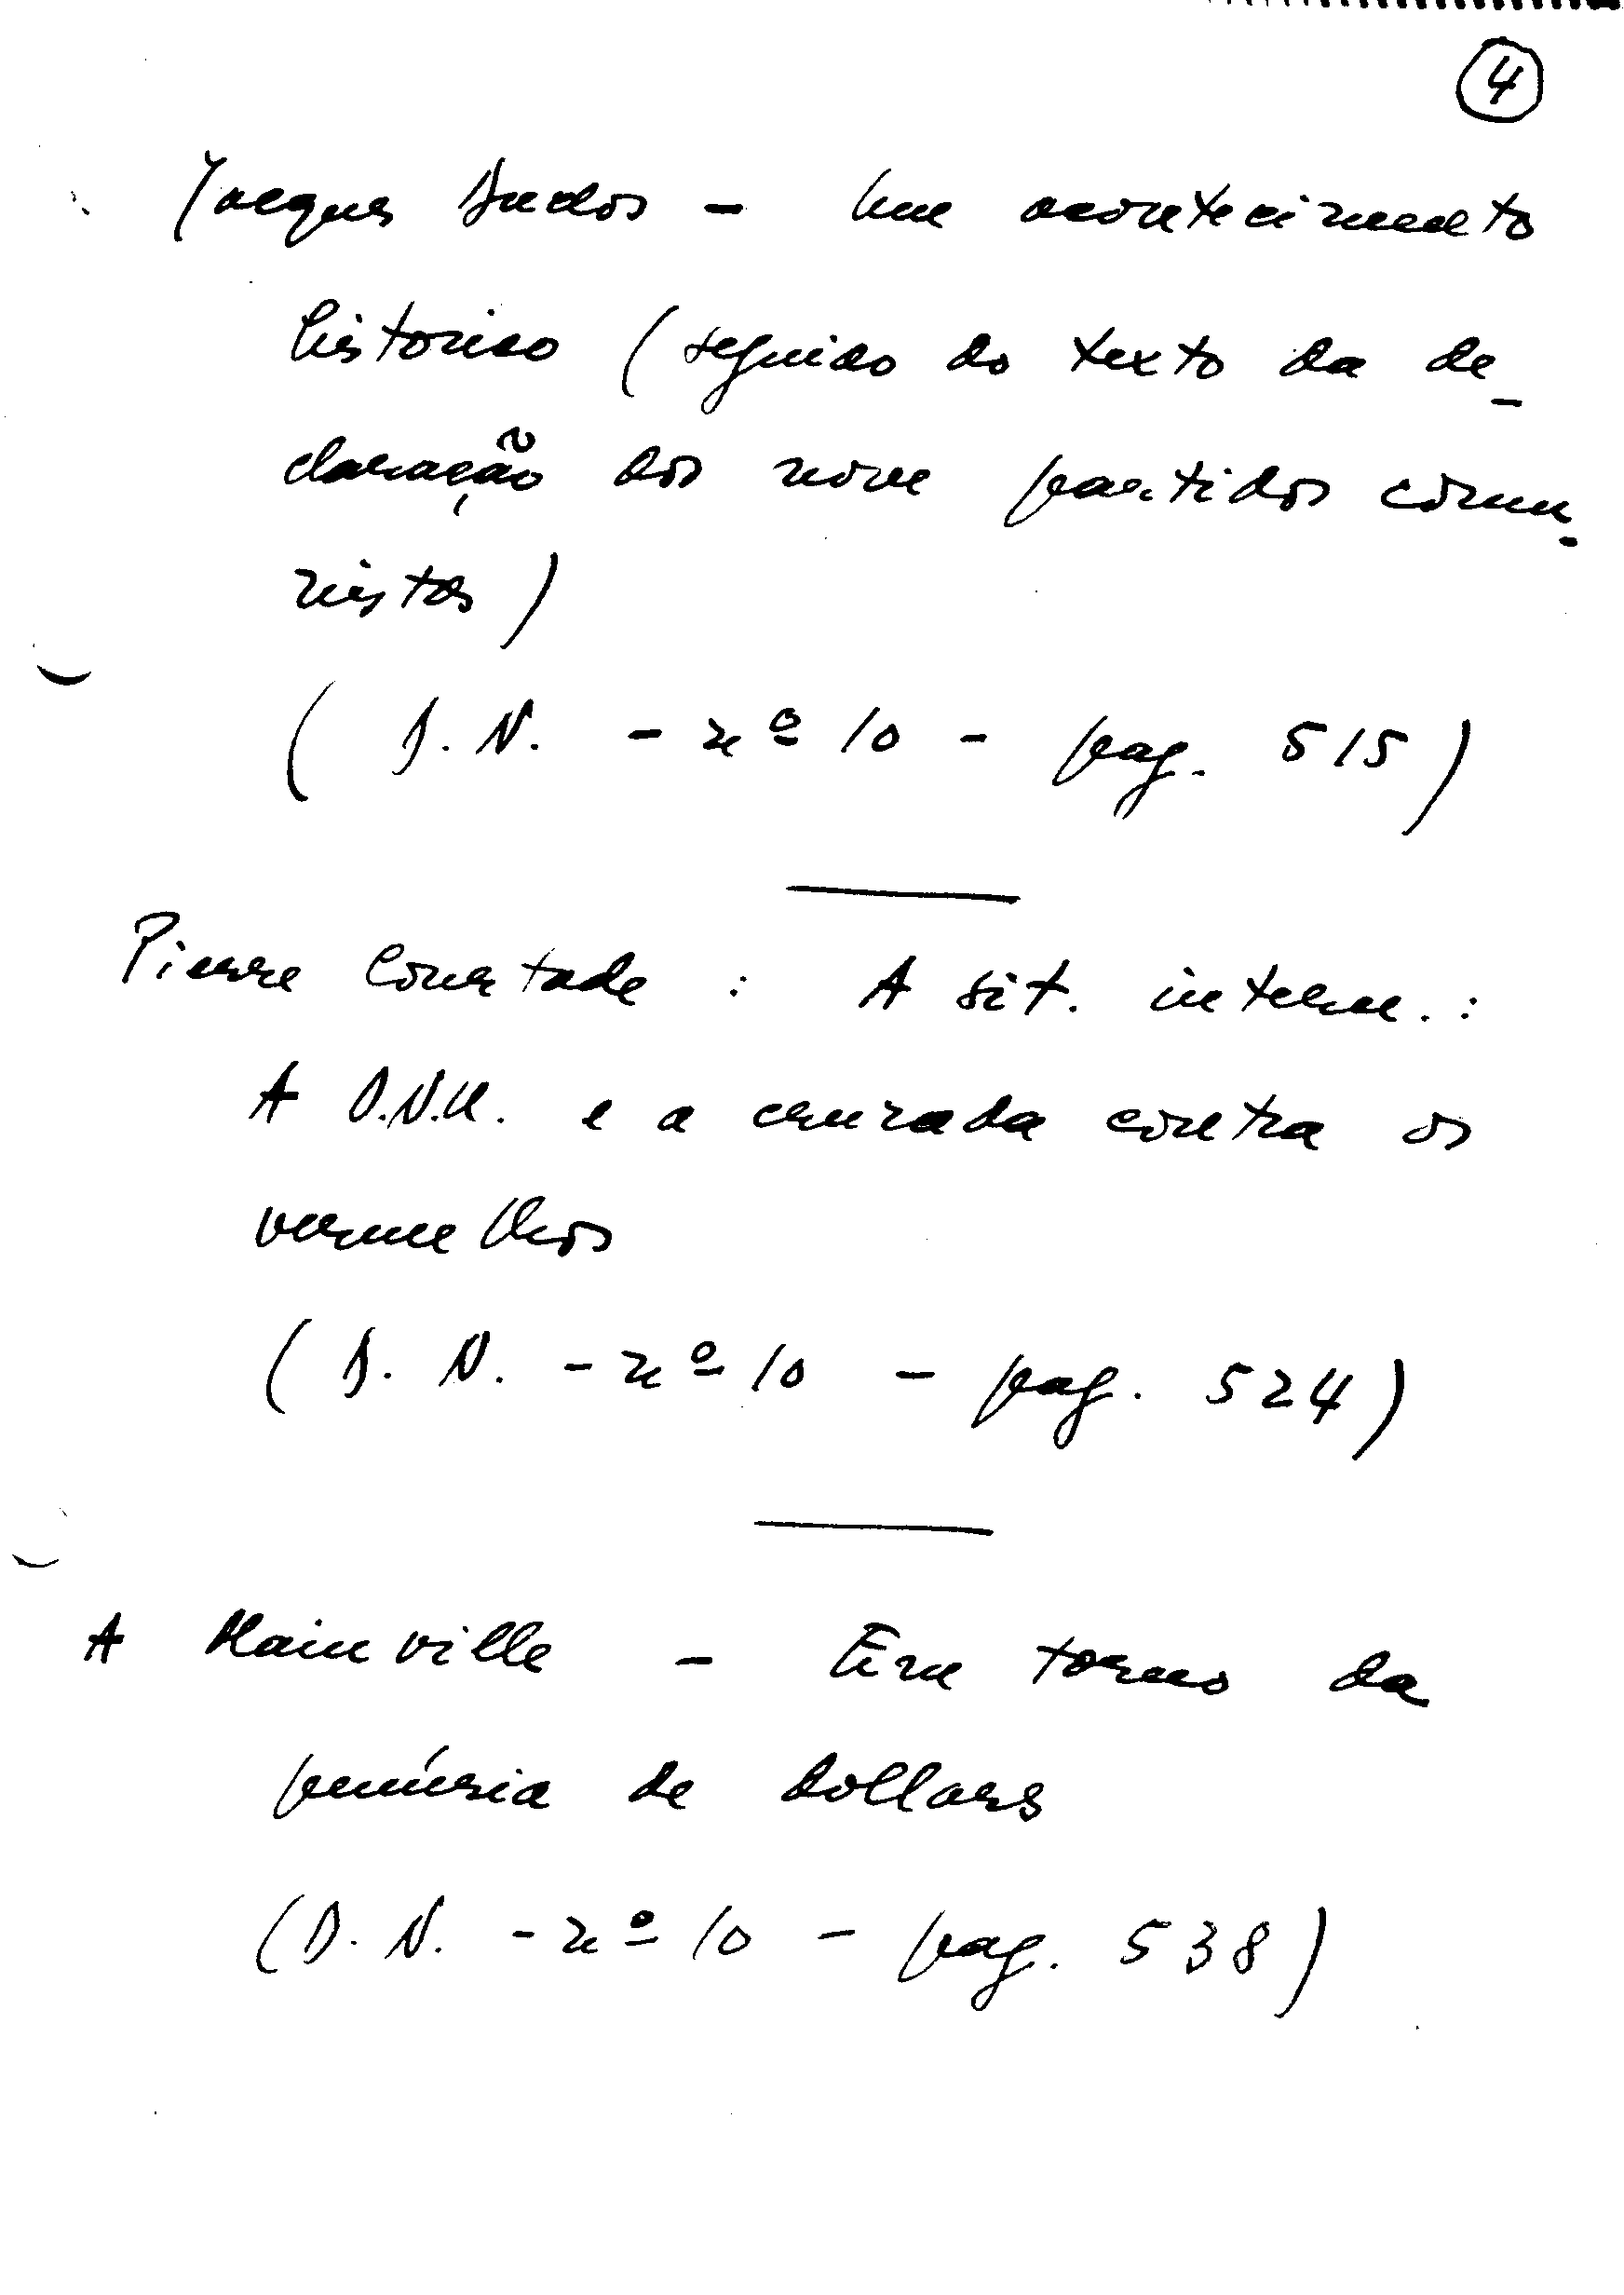 4
Jacques Duclos - Um acontecimento
historico (seguido do texto da de-
claração dos nove partidos comu-
nistas)
(D.N. - nº 10 - pag. 515)
Pierre Courtade : A sit. intern. :
A O.N.U. e a cruzada contra os
vermelhos
(D. N. - nº 10 - pag. 524)
A Mainville - Em torno da
penúria de dollars
(D. N. - nº 10 - pag. 538)